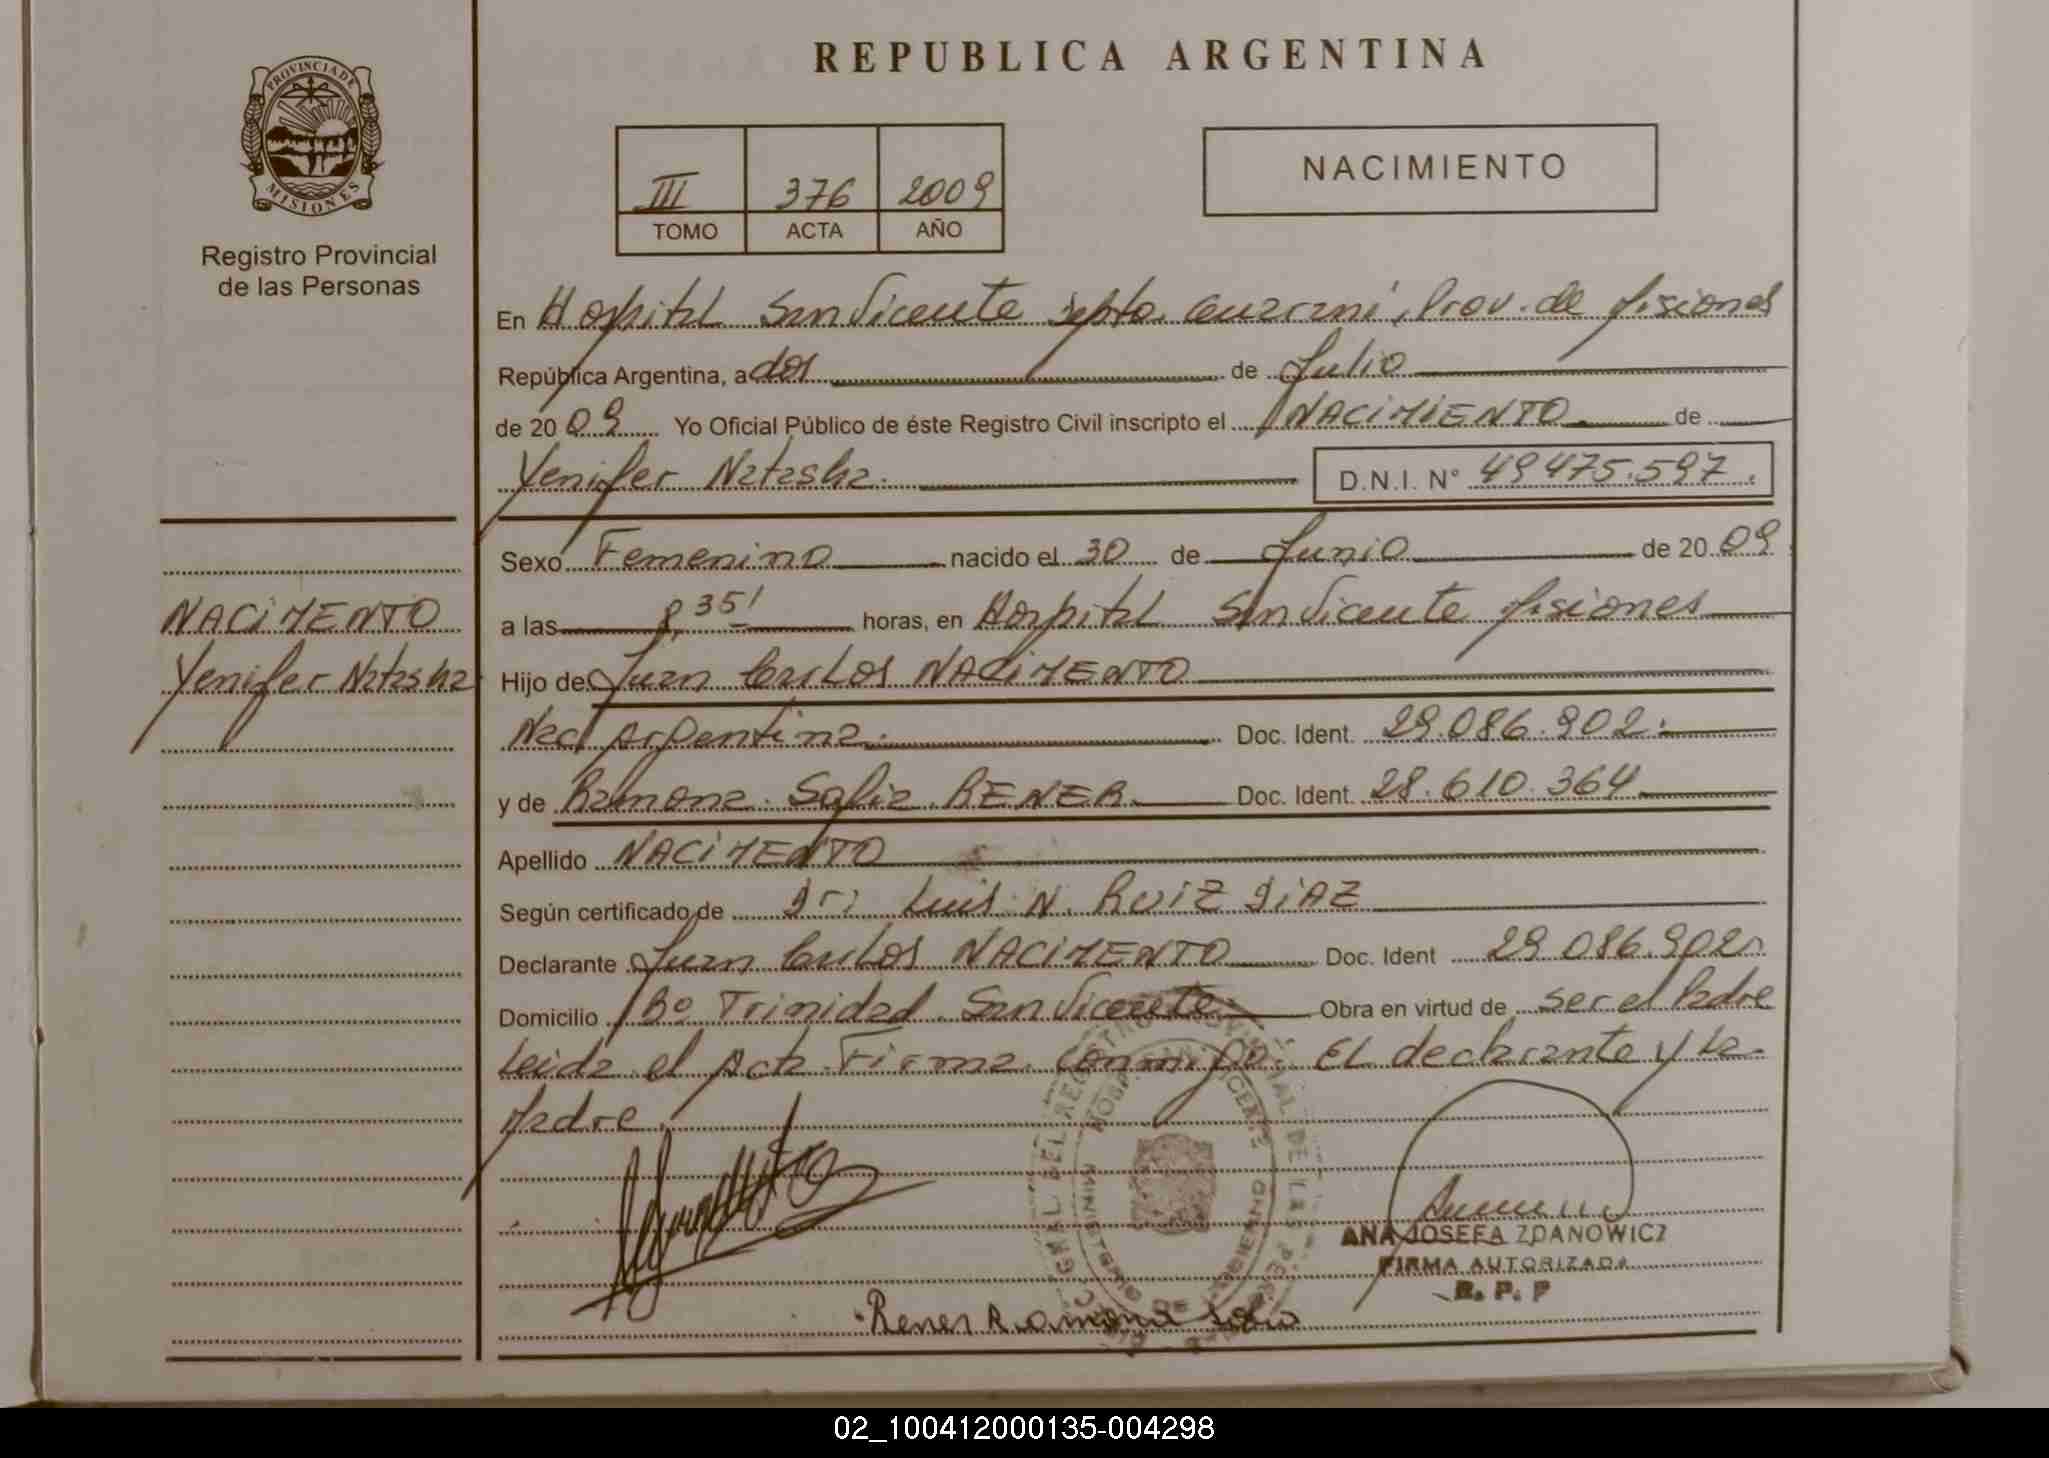 REPUBLICA ARGENTINA
PROVINCIA DE
MISIONES
Registro Provincial
de las Personas
III 376 2009
TOMO ACTA AÑO
NACIMIENTO
En Hospital San Vicente Dpto. Guaraní, Prov. de Misiones
República Argentina, a dos de Julio
de 2009 Yo Oficial Público de éste Registro Civil inscripto el NACIMIENTO de
Yenifer Natasha. D.N.I. N° 49475.597.
Sexo Femenino nacido el 30 de Junio de 2009
a las 8,35' horas, en Hospital San Vicente Misiones
Hijo de Juan Carlos NACIMENTO
Nac. Argentina. Doc. Ident. 29.086.902.
y de Ramona Sofia RENER Doc. Ident. 28.610.364
Apellido NACIMENTO
Según certificado de Dr. Luis N. RUIZ DIAZ
Declarante Juan Carlos NACIMENTO Doc. Ident 29.086.902
Domicilio Bº Trinidad. San Vicente Obra en virtud de ser el Padre
Leida el Acta Firma conmigo. El declarante y La
Madre.
NACIMENTO
Yenifer Natasha
ANA JOSEFA ZDANOWICZ
FIRMA AUTORIZADA
R. P. P
Rener Ramona Sofia
02_100412000135-004298